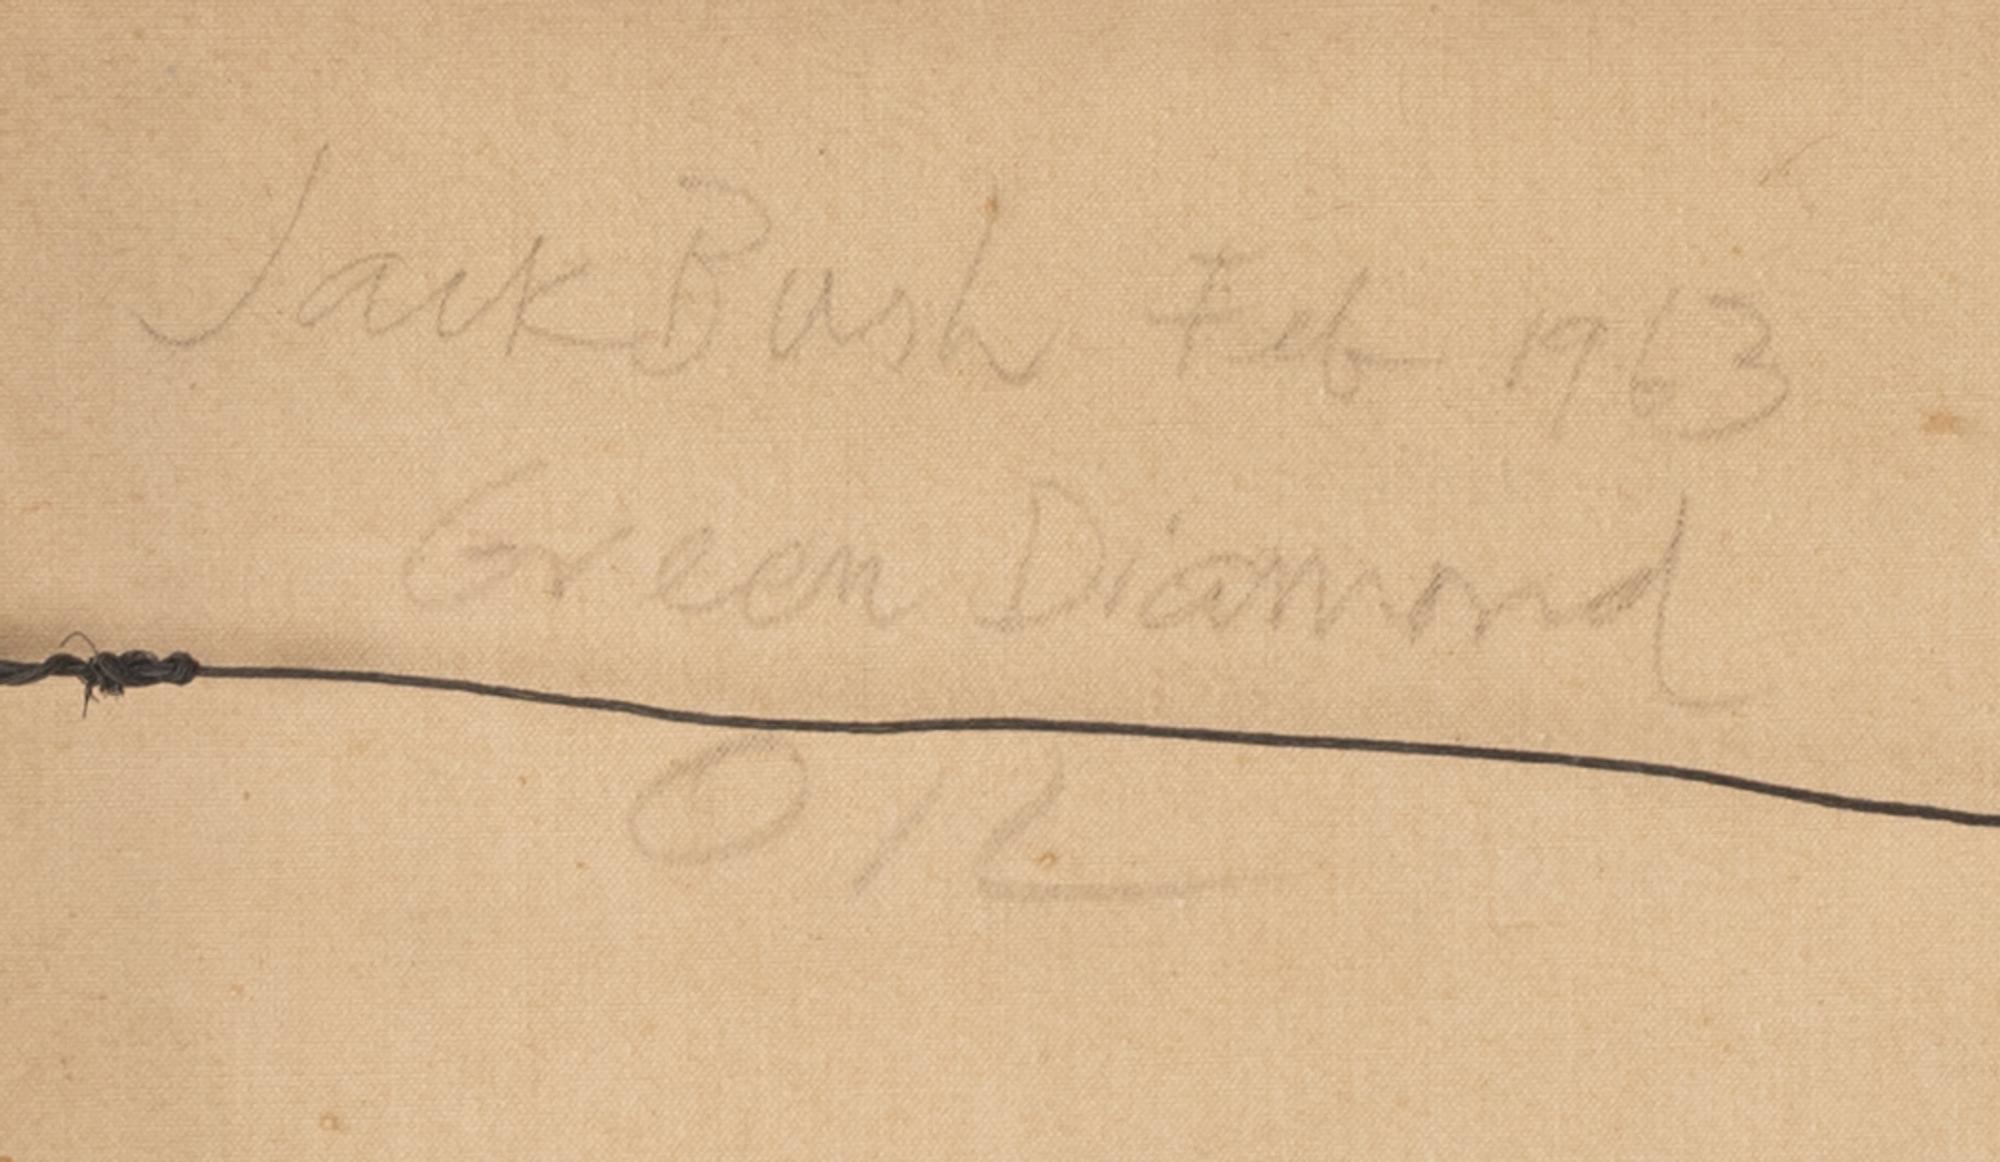 Jack Bush Feb 1963
Green Diamond
OIL